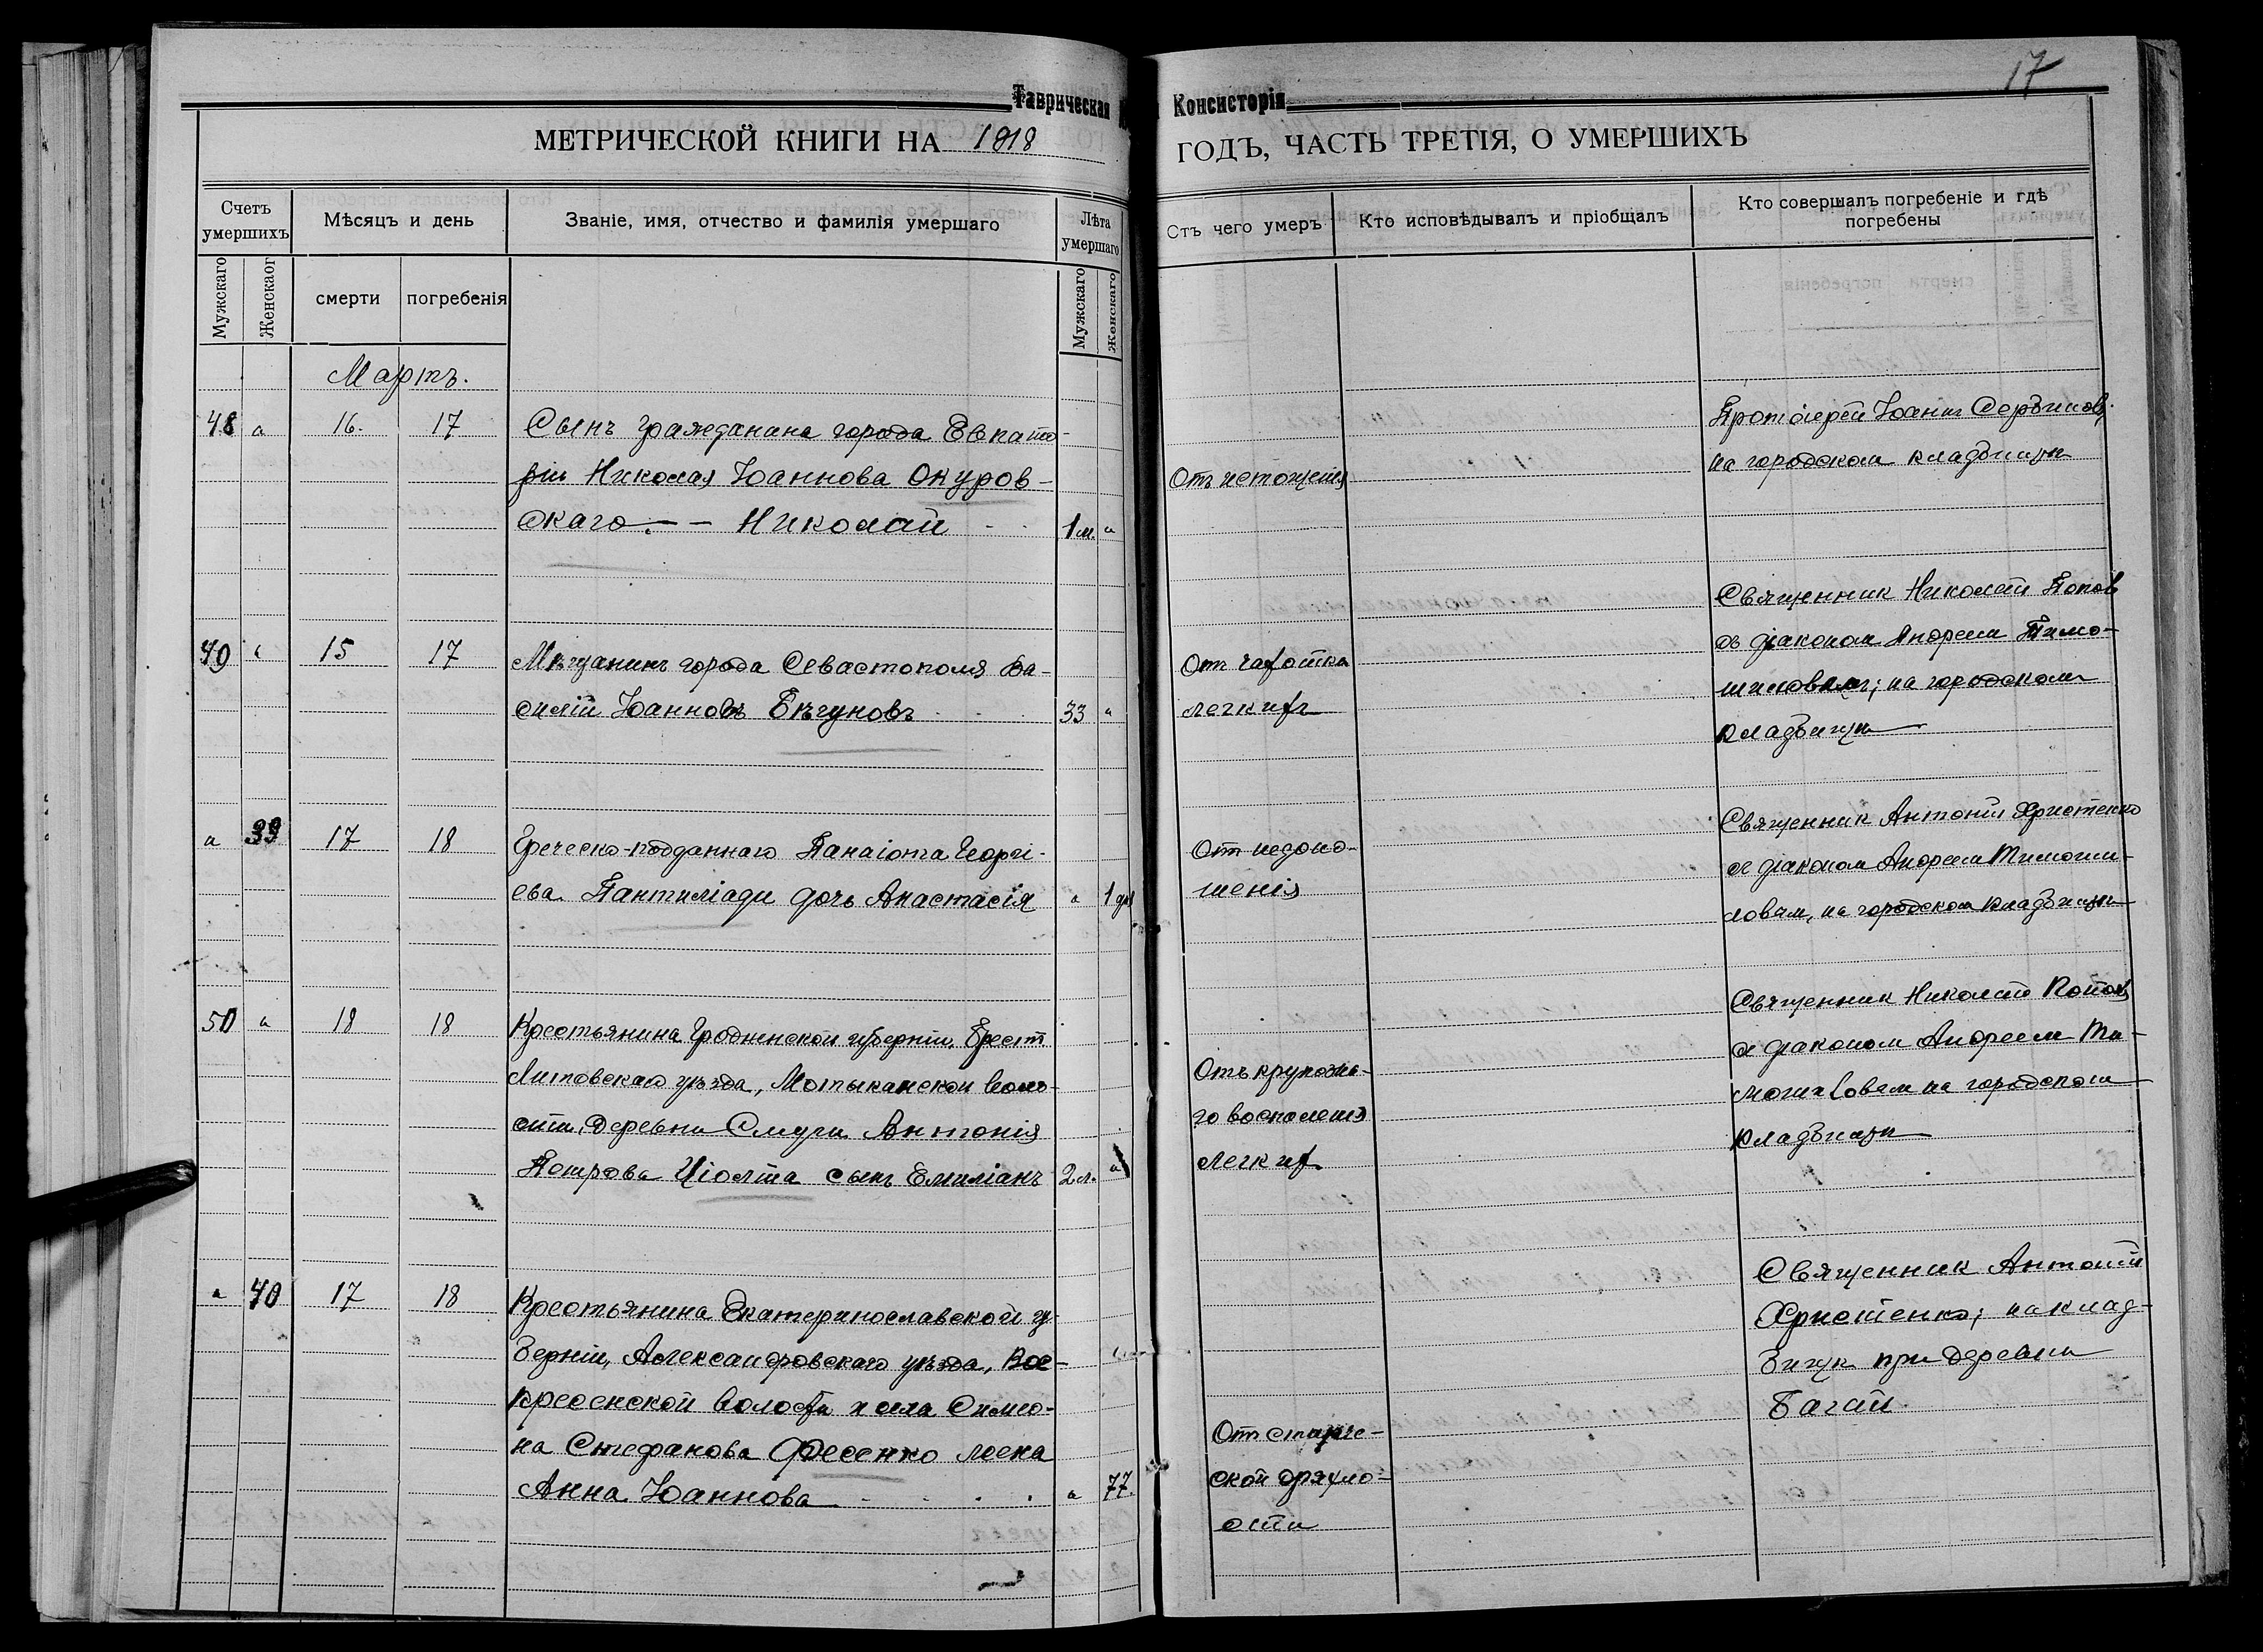 17
Таврическая Консисторія
МЕТРИЧЕСКОЙ КНИГИ НА 1918 ГОДЪ, ЧАСТЬ ТРЕТІЯ, О УМЕРШИХЪ
Счетъ умершихъ
Мѣсяцъ и день
Званіе, имя, отчество и фамилія умершаго
Лѣта умершаго
Отъ чего умеръ
Кто исповѣдывалъ и пріобщалъ
Кто совершалъ погребеніе и гдѣ погребены
Мужскаго
Женскаог
смерти
погребенія
Мужскаго
Женскаго
Мартъ.
48 " 16. 17
Сынъ гражданина города Евпато-
ріи Николая Іоаннова Окуров-
скаго — Николай
1 м. "
Отъ истощенія
Протоіерей Іоаннъ
на городском кладбищѣ
49 " 15 17
Мѣщанинъ города Севастополя Ва-
силій Іоанновъ Бѣгуновъ
33 "
От чахотки
легкихъ
Священник Николай Попов
съ діаконом Андреем Тимо-
шиловымъ; на городскомъ
кладбищѣ
" 39 17 18
Греческо-подданнаго Панаіота Георгі-
ева Пантиліади дочь Анастасія
" 1 дн
От недоно-
шенія
Священник Антоній Христенко
с діаконом Андреем Тимоши-
ловым, на городском кладбищѣ
50 " 18 18
Крестьянина Гродненской губерніи, Брест
Литовскаго уѣзда, Мотыканской воло-
сти, деревни Смуги Антонія
Петрова сынъ Емиліанъ
2 л. "
Отъ крупозна-
го воспаленія
легких
Священник Николай Попов
с діаконом Андреем Ти-
мошиловым на городском
кладбищѣ
" 40 17 18
Крестьянина Екатеринославской гу
берніи, Александровскаго уѣзда, Вос-
кресенской волости и села Симео-
на Стефанова Фесенко жена
Анна Іоаннова
" 77.
От старче-
ской дряхло-
сти
Священник Антоній
Христенко; на клад-
бищѣ при деревни
Багай.